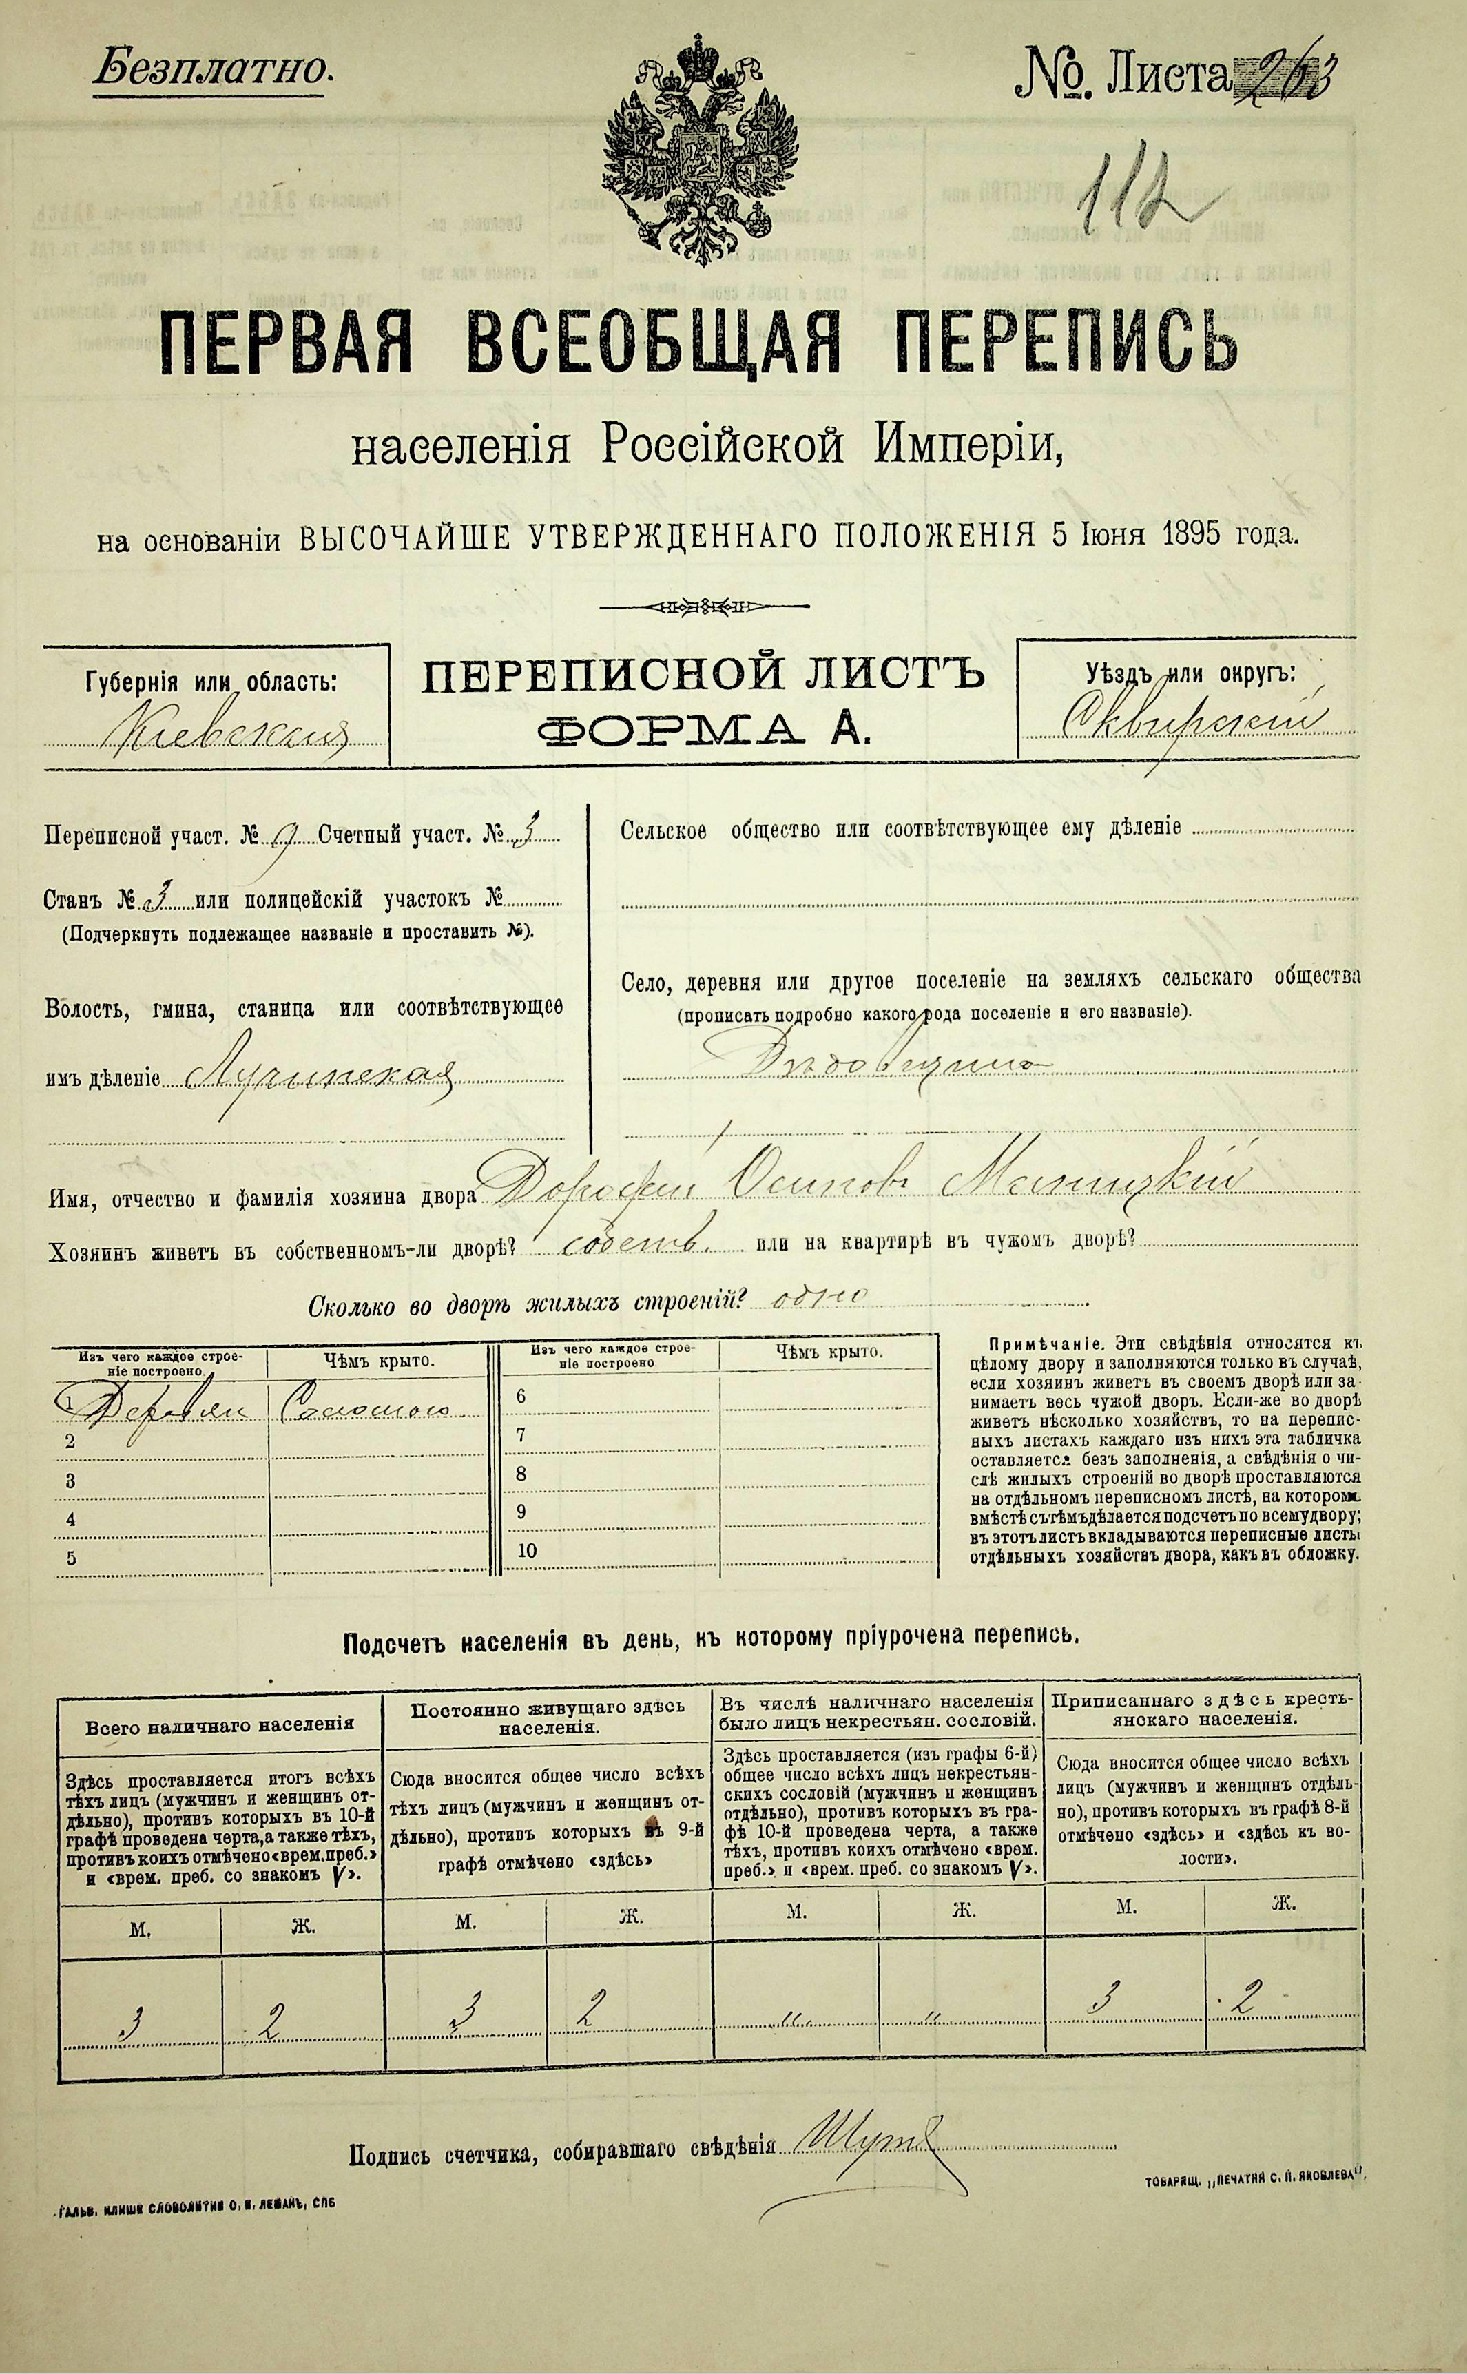 Безплатно.
№. Листа 263
112
ПЕРВАЯ ВСЕОБЩАЯ ПЕРЕПИСЬ
населенія Россійской Имперіи,
на основаніи ВЫСОЧАЙШЕ УТВЕРЖДЕННАГО ПОЛОЖЕНІЯ 5 Іюня 1895 года.
Губернія или область:
Кіевская
ПЕРЕПИСНОЙ ЛИСТЪ
ФОРМА А.
Уѣздъ или округъ:
Сквирскій
Переписной участ. № 9 Счетный участ. № 3
Станъ № 3 или полицейскій участокъ №
(Подчеркнуть подлежащее названіе и проставить №).
Волость, гмина, станица или соотвѣтствующее
имъ дѣленіе Лучинская
Сельское общество или соотвѣтствующее ему дѣленіе
Село, деревня или другое поселеніе на земляхъ сельскаго общества
(прописать подробно какого рода поселеніе и его названіе).
Имя, отчество и фамилія хозяина двора Дорофей Осиповъ
Хозяинъ живетъ въ собственномъ-ли дворѣ? собств. или на квартирѣ въ чужомъ дворѣ?
Сколько во дворѣ жилыхъ строеній? одно
Изъ чего каждое строе-
ніе построено.
Чѣмъ крыто.
Изъ чего каждое строе-
ніе построено
Чѣмъ крыто.
1 Деревян Соломою
2
3
4
5
6
7
8
9
10
Примѣчаніе. Эти свѣдѣнія относятся къ
цѣлому двору и заполняются только въ случаѣ,
если хозяинъ живетъ въ своемъ дворѣ или за-
нимаетъ весь чужой дворъ. Если-же во дворѣ
живетъ нѣсколько хозяйствъ, то на перепис-
ныхъ листахъ каждаго изъ нихъ эта табличка
оставляется безъ заполненія, а свѣдѣнія о чи-
слѣ жилыхъ строеній во дворѣ проставляются
на отдѣльномъ переписномъ листѣ, на которомъ
вмѣстѣ съ тѣмъ дѣлается подсчетъ по всему двору;
въ этотъ листъ вкладываются переписные листы
отдѣльныхъ хозяйствъ двора, какъ въ обложку.
Подсчетъ населенія въ день, къ которому пріурочена перепись.
Всего наличнаго населенія
Здѣсь проставляется итогъ всѣхъ
тѣхъ лицъ (мужчинъ и женщинъ от-
дѣльно), противъ которыхъ въ 10-й
графѣ проведена черта, а также тѣхъ,
противъ коихъ отмѣчено «врем. преб.»
и «врем. преб. со знакомъ V».
М.
Ж.
3
2
Постоянно живущаго здѣсь
населенія.
Сюда вносится общее число всѣхъ
тѣхъ лицъ (мужчинъ и женщинъ от-
дѣльно), противъ которыхъ въ 9-й
графѣ отмѣчено «здѣсь»
М.
Ж.
3
2
Въ числѣ наличнаго населенія
было лицъ некрестьян. сословій.
Здѣсь проставляется (изъ графы 6-й)
общее число всѣхъ лицъ некрестьян-
скихъ сословій (мужчинъ и женщинъ
отдѣльно), противъ которыхъ въ гра-
фѣ 10-й проведена черта, а также
тѣхъ, противъ коихъ отмѣчено «врем.
преб.» и «врем. преб. со знакомъ V».
М.
Ж.
"
"
Приписаннаго здѣсь кресть-
янскаго населенія.
Сюда вносится общее число всѣхъ
лицъ (мужчинъ и женщинъ отдѣль-
но), противъ которыхъ въ графѣ 8-й
отмѣчено «здѣсь» и «здѣсь къ во-
лости».
М.
Ж.
3
2
Подпись счетчика, собиравшаго свѣдѣнія
ГАЛЬВ. КЛИШЕ СЛОВОЛИТНИ О. И. ЛЕМАНЪ, СПБ
ТОВАРИЩ. „ПЕЧАТНЯ С. П. ЯКОВЛЕВА".